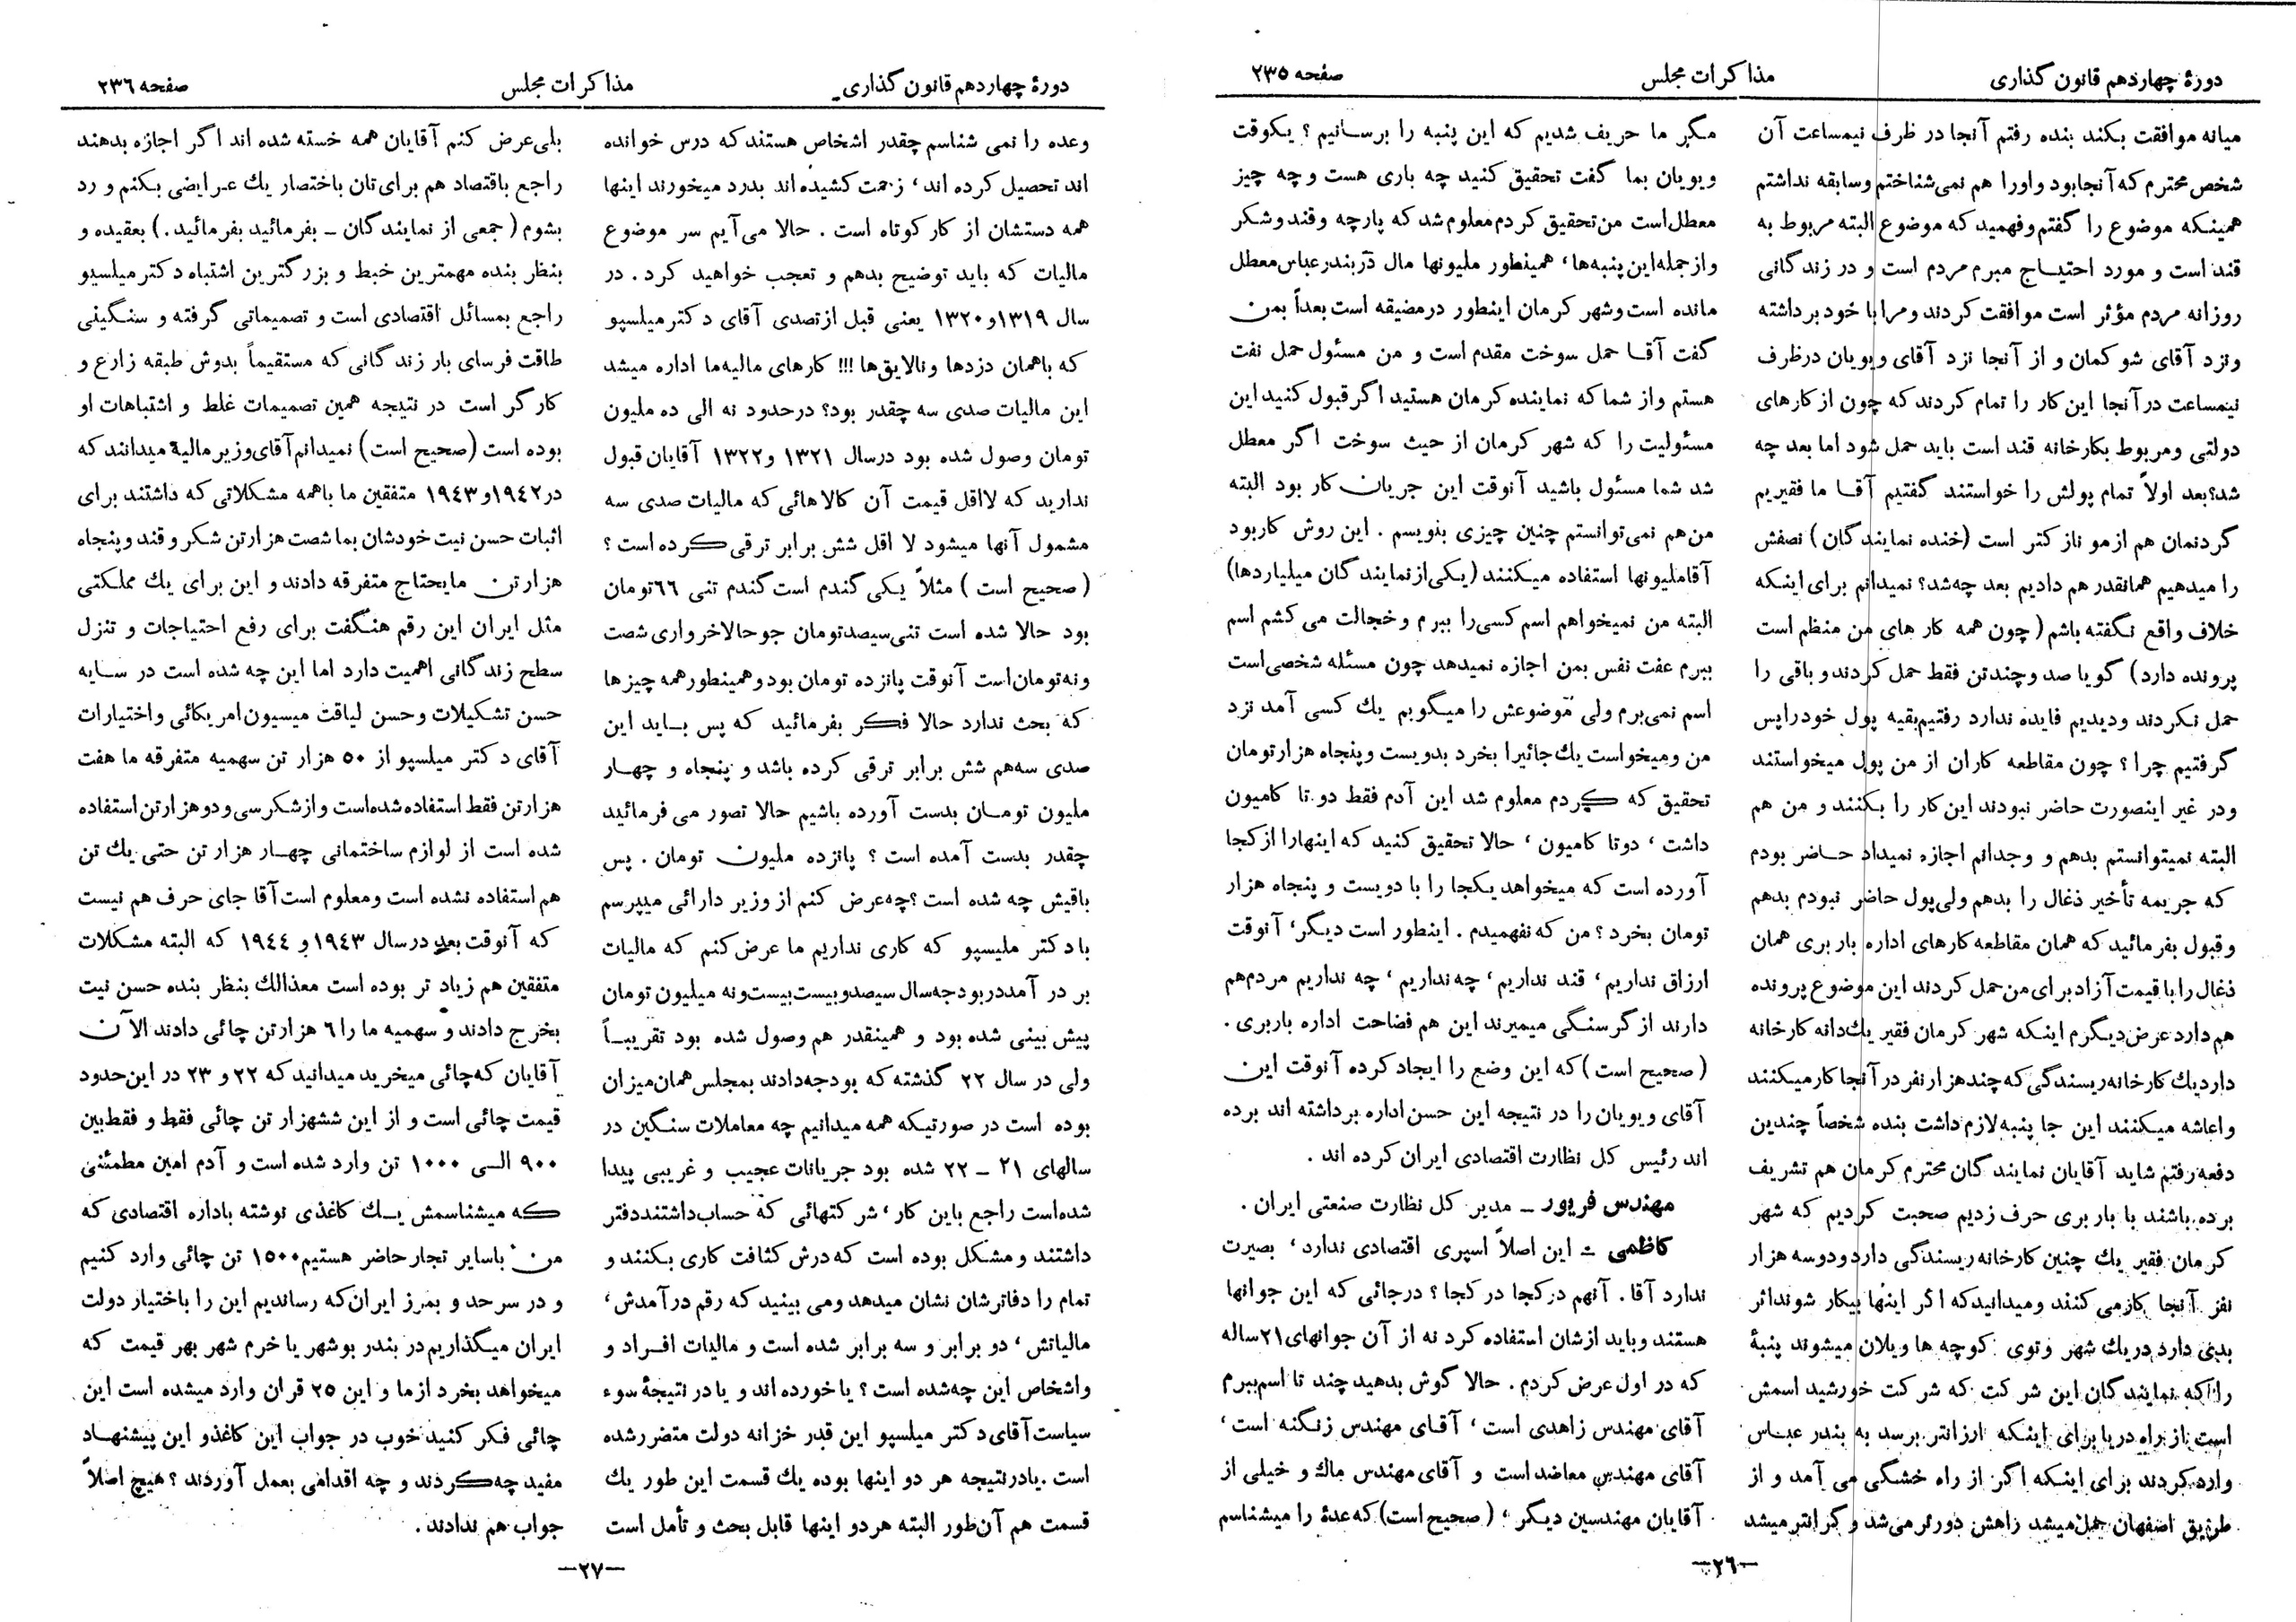 دورۀ چهاردهم قانون گذاری
مذاکرات مجلس
صفحه ۲۳۵
میانه موافقت بکند بنده رفتم آنجا در ظرف نیمساعت آن
شخص محترم که آنجا بود و اورا هم نمی شناختم و سابقه نداشتم
همینکه موضوع را گفتم و فهمید که موضوع البته مربوط به
قند است و مورد احتیاج مبرم مردم است و در زندگانی
روزانه مردم مؤثر است موافقت کردند و مرا با خود برداشته
ونزد آقای شوکمان و از آنجا نزد آقای ویویان درظرف
نیمساعت درآنجا این کار را تمام کردند که چون از کارهای
دولتی ومربوط بکارخانه قند است باید حمل شود اما بعد چه
شد؟ بعد اولاً تمام پولش را خواستند گفتیم آقا ما فقیریم
گردنمان هم ازمو نازکتر است (خنده نمایندگان) نصفش
را میدهیم همانقدر هم دادیم بعد چه شد؟ نمیدانم برای اینکه
خلاف واقع نگفته باشم (چون همه کار های من منظم است
پرونده دارد) گویا صد و چند تن فقط حمل کردند و باقی را
حمل نکردند ودیدیم فایده ندارد رفتیم بقیه پول خود را پس
گرفتیم چرا؟ چون مقاطعه کاران از من پول میخواستند
ودر غیر اینصورت حاضر نبودند این کار را بکنند و من هم
البته نمیتوانستم بدهم و وجدانم اجازه نمیداد حاضر بودم
که جریمه تأخیر ذغال را بدهم ولی پول حاضر نبودم بدهم
وقبول بفرمائید که همان مقاطعه کارهای اداره باربری همان
ذغال را با قیمت آزاد برای من حمل کردند این موضوع پرونده
هم دارد عرض دیگرم اینکه شهر کرمان فقیر یك دانه کارخانه
دارد یك کارخانه ریسندگی که چند هزار نفر در آنجا کار میکنند
واعاشه میکنند این جا پنبه لازم داشت بنده شخصاً چندین
دفعه رفتم شاید آقایان نمایندگان محترم کرمان هم تشریف
برده باشند با باربری حرف زدیم صحبت کردیم که شهر
کرمان فقیر یك چنین کارخانه ریسندگی دارد ودوسه هزار
نفر آنجا کار می کنند ومیدانید که اگر اینها بیکار شوند اثر
بدی دارد دریك شهر وتوی کوچه ها ویلان میشوند پنبۀ
را که نمایندگان این شرکت که شرکت خورشید اسمش
است از راه دریا برای اینکه ارزانتر برسد به بندر عباس
وارد کردند برای اینکه اگر از راه خشگی می آمد و از
طریق اصفهان حمل میشد راهش دورتر می شد و گرانتر میشد
مگر ما حریف شدیم که این پنبه را برسانیم؟ یکوقت
ویویان بما گفت تحقیق کنید چه باری هست و چه چیز
معطل است من تحقیق کردم معلوم شد که پارچه وقند وشکر
وازجمله این پنبه ها، همینطور ملیونها مال در بندرعباس معطل
مانده است وشهر کرمان اینطور درمضیقه است بعداً بمن
گفت آقا حمل سوخت مقدم است و من مسئول حمل نفت
هستم واز شما که نماینده کرمان هستید اگر قبول کنید این
مسئولیت را که شهر کرمان از حیث سوخت اگر معطل
شد شما مسئول باشید آنوقت این جریان کار بود البته
من هم نمی توانستم چنین چیزی بنویسم . این روش کار بود
آقاملیونها استفاده میکنند (یکی از نمایندگان میلیاردها)
البته من نمیخواهم اسم کسی را ببرم و خجالت می کشم اسم
ببرم عفت نفس بمن اجازه نمیدهد چون مسئله شخصی است
اسم نمی برم ولی موضوعش را میگویم یك کسی آمد نزد
من ومیخواست یك جائیرا بخرد بدویست وپنجاه هزار تومان
تحقیق که کردم معلوم شد این آدم فقط دو تا کامیون
داشت ، دوتا کامیون ، حالا تحقیق کنید که اینهارا از کجا
آورده است که میخواهد یکجا را با دویست و پنجاه هزار
تومان بخرد؟ من که نفهمیدم . اینطور است دیگر، آنوقت
ارزاق نداریم ، قند نداریم ، چه نداریم ، چه نداریم مردم هم
دارند از گرسنگی میمیرند این هم فضاحت اداره باربری .
(صحیح است) که این وضع را ایجاد کرده آنوقت این
آقای ویویان را در نتیجه این حسن اداره برداشته اند برده
اند رئیس کل نظارت اقتصادی ایران کرده اند .
مهندس فریور ـ مدیر کل نظارت صنعتی ایران .
کاظمی ـ این اصلاً اسپری اقتصادی ندارد ، بصیرت
ندارد آقا . آنهم در کجا در کجا؟ درجائی که این جوانها
هستند وباید ازشان استفاده کرد نه از آن جوانهای ۲۱ ساله
که در اول عرض کردم . حالا گوش بدهید چند تا اسم ببرم
آقای مهندس زاهدی است ، آقای مهندس زنگنه است ،
آقای مهندس معاضد است و آقای مهندس ماك و خیلی از
آقایان مهندسین دیگر ، (صحیح است) که عدۀ را میشناسم
ـ۲۶ـ
دورۀ چهاردهم قانون گذاری
مذاکرات مجلس
صفحه ۲۳۶
وعده را نمی شناسم چقدر اشخاص هستند که درس خوانده
اند تحصیل کرده اند ، زحمت کشیده اند بدرد میخورند اینها
همه دستشان از کار کوتاه است . حالا می آیم سر موضوع
مالیات که باید توضیح بدهم و تعجب خواهید کرد . در
سال ۱۳۱۹ و ۱۳۲۰ یعنی قبل از تصدی آقای دکتر میلسپو
که باهمان دزدها ونالایق ها !!! کارهای مالیه ما اداره میشد
این مالیات صدی سه چقدر بود؟ درحدود نه الی ده ملیون
تومان وصول شده بود درسال ۱۳۲۱ و ۱۳۲۲ آقایان قبول
ندارید که لااقل قیمت آن کالاهائی که مالیات صدی سه
مشمول آنها میشود لا اقل شش برابر ترقی کرده است ؟
(صحیح است) مثلاً یکی گندم است گندم تنی ۶۶ تومان
بود حالا شده است تنی سیصد تومان جو حالا خرواری شصت
ونه تومان است آنوقت پانزده تومان بود وهمینطور همه چیزها
که بحث ندارد حالا فکر بفرمائید که پس باید این
صدی سه هم شش برابر ترقی کرده باشد و پنجاه و چهار
ملیون تومان بدست آورده باشیم حالا تصور می فرمائید
چقدر بدست آمده است ؟ پانزده ملیون تومان . پس
باقیش چه شده است ؟ چه عرض کنم از وزیر دارائی میپرسم
با دکتر ملیسپو که کاری نداریم ما عرض کنم که مالیات
بر در آمد در بودجه سال سیصد و بیست بیست ونه میلیون تومان
پیش بینی شده بود و همینقدر هم وصول شده بود تقریباً
ولی در سال ۲۲ گذشته که بودجه دادند بمجلس همان میزان
بوده است در صورتیکه همه میدانیم چه معاملات سنگین در
سالهای ۲۱ ـ ۲۲ شده بود جریانات عجیب و غریبی پیدا
شده است راجع باین کار ، شرکتهائی که حساب داشتند دفتر
داشتند ومشکل بوده است که درش کثافت کاری بکنند و
تمام را دفاترشان نشان میدهد ومی بینید که رقم درآمدش ،
مالیاتش ، دو برابر و سه برابر شده است و مالیات افراد و
واشخاص این چه شده است ؟ یا خورده اند و یا در نتیجۀ سوء
سیاست آقای دکتر میلسپو این قدر خزانه دولت متضرر شده
است . یا در نتیجه هر دو اینها بوده یك قسمت این طور یك
قسمت هم آن طور البته هردو اینها قابل بحث و تأمل است
بلی عرض کنم آقایان همه خسته شده اند اگر اجازه بدهند
راجع باقتصاد هم برای تان باختصار یك عرایضی بکنم و رد
بشوم (جمعی از نمایندگان ـ بفرمائید بفرمائید .) بعقیده و
بنظر بنده مهمترین خبط و بزرگترین اشتباه دکتر میلسپو
راجع بمسائل اقتصادی است و تصمیماتی گرفته و سنگینی
طاقت فرسای بار زندگانی که مستقیماً بدوش طبقه زارع و
کارگر است در نتیجه همین تصمیمات غلط و اشتباهات او
بوده است (صحیح است) نمیدانم آقای وزیر مالیة میدانند که
در ۱۹۴۲ و ۱۹۴۳ متفقین ما باهمه مشکلاتی که داشتند برای
اثبات حسن نیت خودشان بما شصت هزار تن شکر و قند و پنجاه
هزار تن مایحتاج متفرقه دادند و این برای یك مملکتی
مثل ایران این رقم هنگفت برای رفع احتیاجات و تنزل
سطح زندگانی اهمیت دارد اما این چه شده است در سایه
حسن تشکیلات وحسن لیاقت میسیون امریکائی واختیارات
آقای دکتر میلسپو از ۵۰ هزار تن سهمیه متفرقه ما هفت
هزارتن فقط استفاده شده است وازشکر سی ودو هزارتن استفاده
شده است از لوازم ساختمانی چهار هزار تن حتی یك تن
هم استفاده نشده است ومعلوم است آقا جای حرف هم نیست
که آنوقت بعد در سال ۱۹۴۳ و ۱۹۴۴ که البته مشکلات
متفقین هم زیاد تر بوده است معذالك بنظر بنده حسن نیت
بخرج دادند و سهمیه ما را ۶ هزارتن چائی دادند الآن
آقایان که چائی میخرید میدانید که ۲۲ و ۲۳ در این حدود
قیمت چائی است و از این ششهزار تن چائی فقط و فقط بین
۹۰۰ الی ۱۰۰۰ تن وارد شده است و آدم امین مطمئنی
که میشناسمش یك کاغذی نوشته باداره اقتصادی که
من باسایر تجار حاضر هستیم ۱۵۰۰ تن چائی وارد کنیم
و در سرحد و بمرز ایران که رساندیم این را باختیار دولت
ایران میگذاریم در بندر بوشهر یا خرم شهر بهر قیمت که
میخواهد بخرد ازما و این ۲۵ قران وارد میشده است این
چائی فکر کنید خوب در جواب این کاغذ و این پیشنهاد
مفید چه کردند و چه اقدامی بعمل آوردند ؟ هیچ اصلاً
جواب هم ندادند .
ـ۲۷ـ